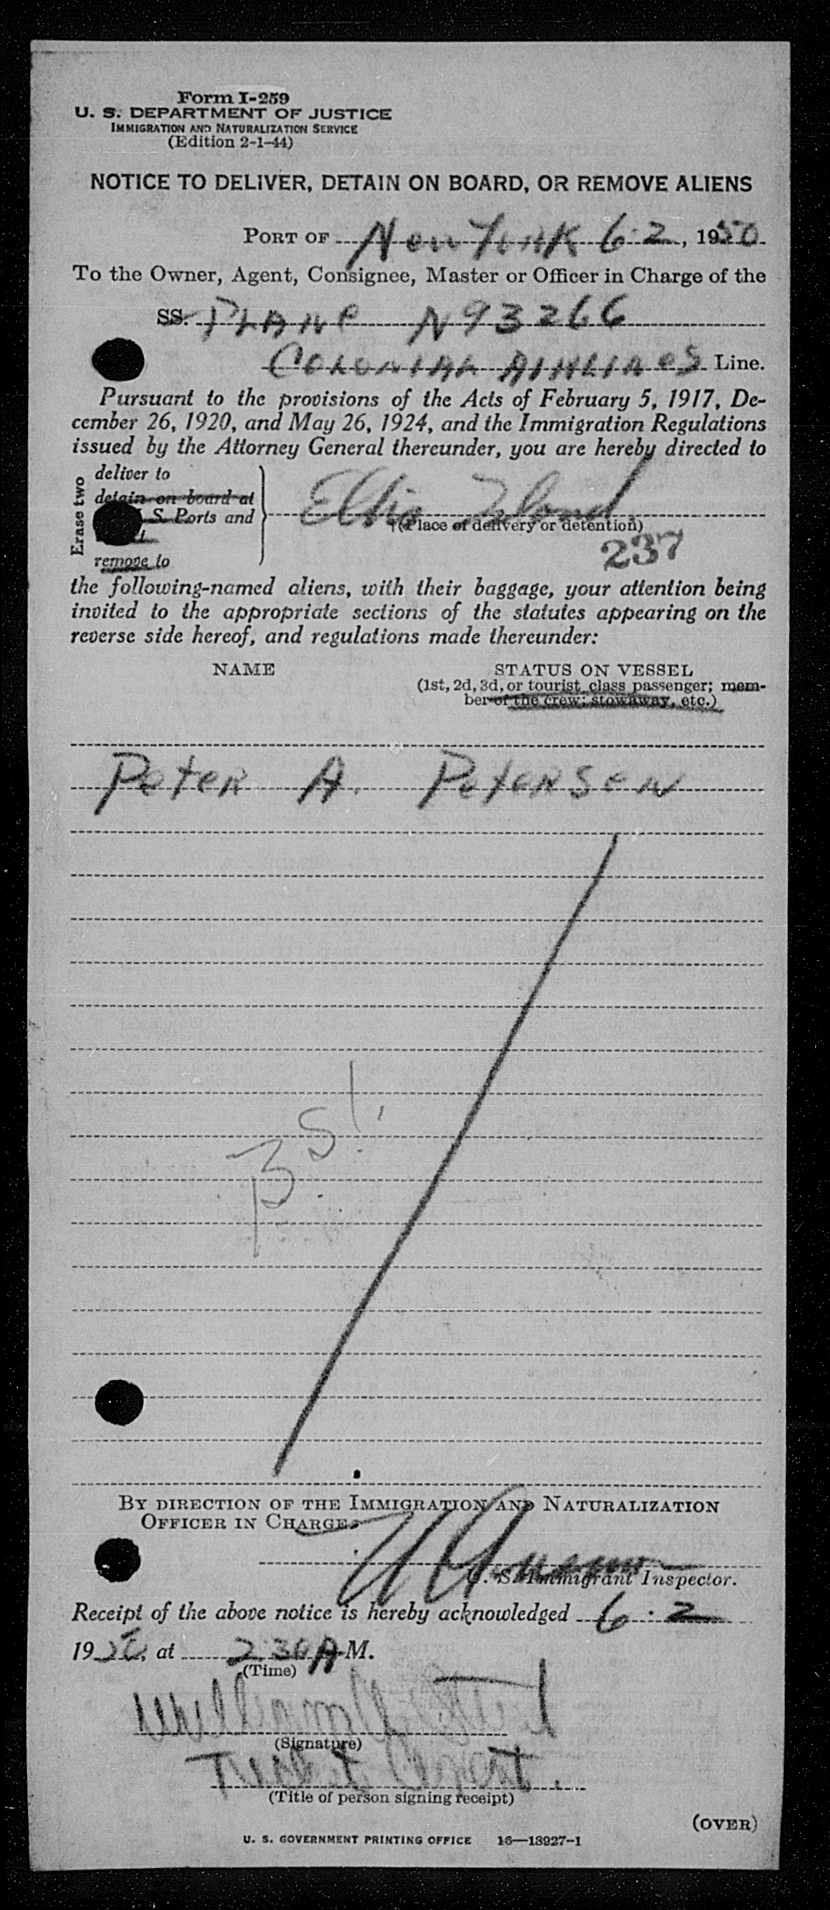 Form I-259
U. S. DEPARTMENT OF JUSTICE
IMMIGRATION AND NATURALIZATION SERVICE
(Edition 2-1-44)
NOTICE TO DELIVER, DETAIN ON BOARD, OR REMOVE ALIENS
PORT OF New York 6-2, 1950
To the Owner, Agent, Consignee, Master or Officer in Charge of the
SS. Plane N93266
Colonial Airlines Line.
Pursuant to the provisions of the Acts of February 5, 1917, De-
cember 26, 1920, and May 26, 1924, and the Immigration Regulations
issued by the Attorney General thereunder, you are hereby directed to
Erase two
deliver to
detain on board at
S. Ports and
remove to
Ellis Island
(Place of delivery or detention)
237
the following-named aliens, with their baggage, your attention being
invited to the appropriate sections of the statutes appearing on the
reverse side hereof, and regulations made thereunder:
NAME STATUS ON VESSEL
(1st, 2d, 3d, or tourist class passenger; mem-
ber of the crew; stowaway, etc.)
Peter A. Petersen
BY DIRECTION OF THE IMMIGRATION AND NATURALIZATION
OFFICER IN CHARGE
U. S. Immigrant Inspector.
Receipt of the above notice is hereby acknowledged 6-2
1950, at 2 30 A M.
(Time)
(Signature)
(Title of person signing receipt)
(OVER)
U. S. GOVERNMENT PRINTING OFFICE 16—13927-1